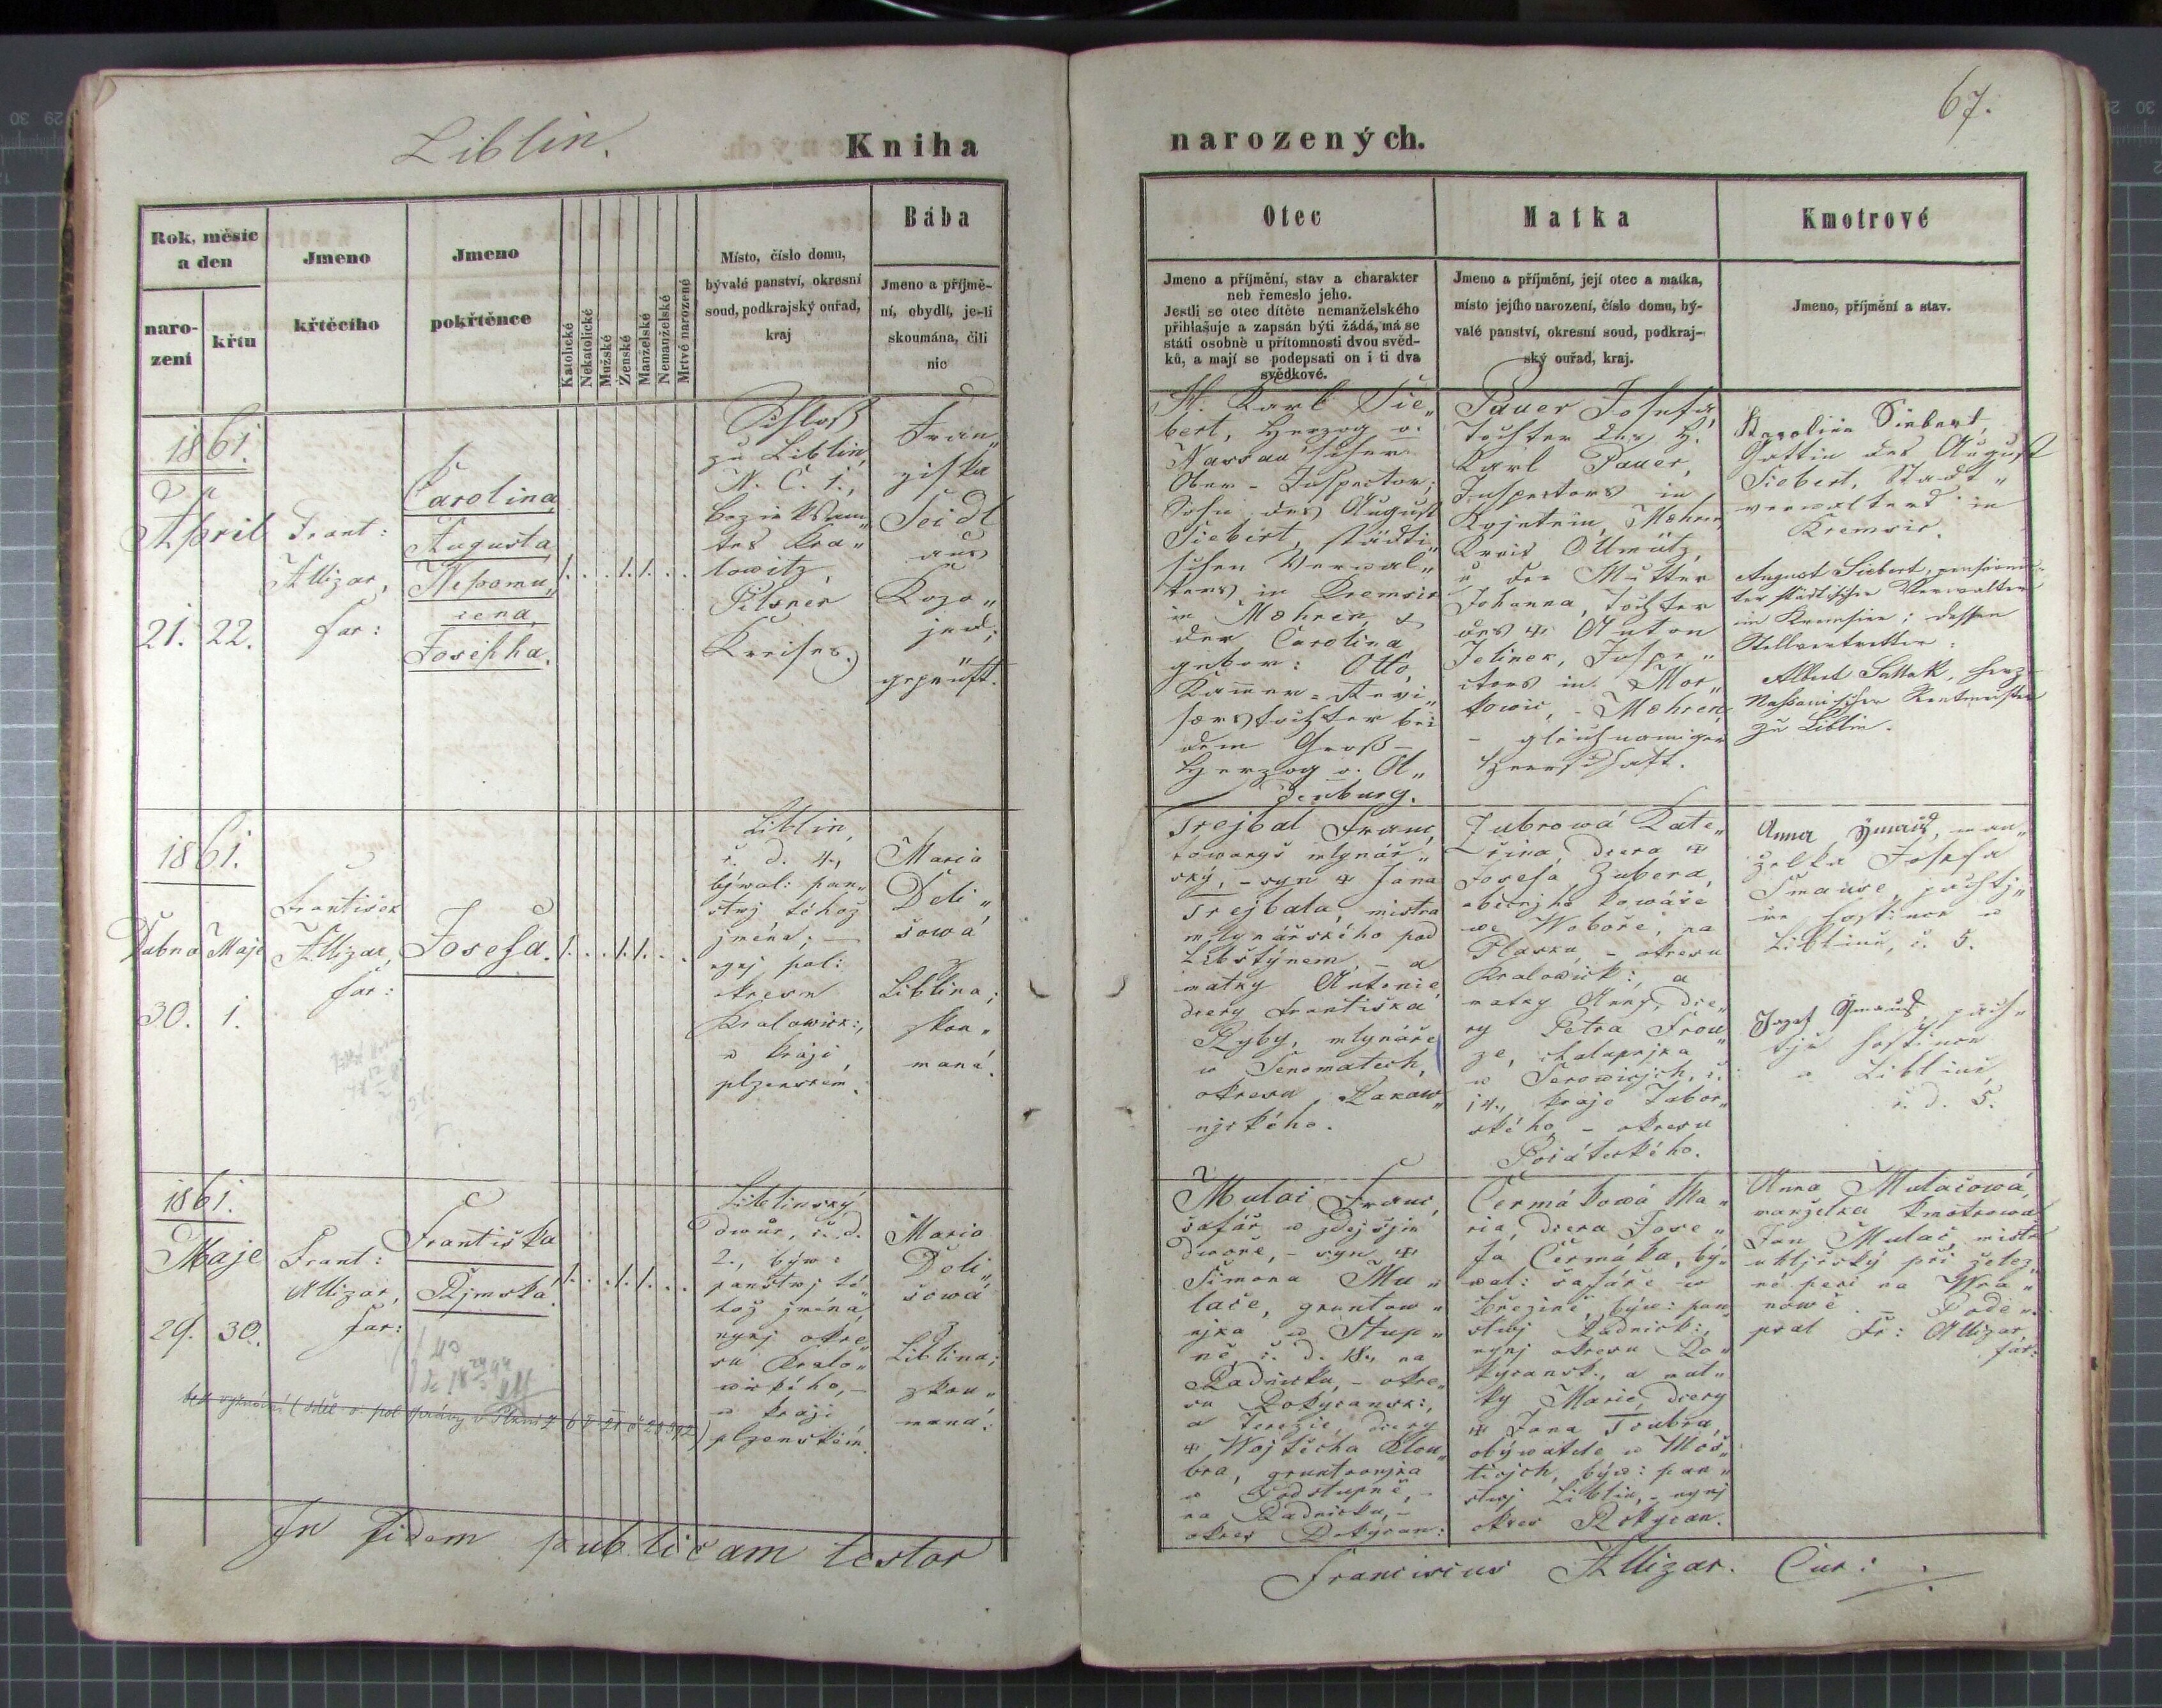 Liblin.
Kniha
Rok, měsíc
a den
naro-
zení
křtu
Jmeno
křtěcího
Jmeno
pokřtěnce
Katolické
Nekatolické
Mužské
Ženské
Manželské
Nemanželské
Mrtvé narozené
Místo, číslo domu,
bývalé panství, okresní
soud, podkrajský ouřad,
kraj
Bába
Jmeno a příjmě-
ní, obydlí, je-li
skoumána, čili
nic
1861.
April
21. 22.
Frant:
Allizar,
far:
Carolina
Augusta
Nepomu„
cena,
Josepha.
1. . . 1. 1. . .
Schloß
zu Liblin,
N. C. 1.,
Bezirksam„
tes Kra„
lowitz,
Pilsner
Kreises.
Fran„
ziska
Seidl
aus
Kozo„
jed;
geprüft.
1861.
Dubna Maje
30. 1.
František
Allizar,
far:
Josefa.
1. . . 1. 1. . .
Liblin,
č. d. 4.,
býwal: pan„
stwj téhož
jména; —
nynj pol:
okresu
Kralowick:,
w kraji
plzenském.
Maria
Deli„
šowá
z
Liblina;
zkou„
maná.
1861.
Maje
29. 30.
Frant:
Allizar,
far:
Františka
Řjmská.
1. . . 1. 1. . .
Liblinský
dwůr, č. d.
2., býw:
panstwj té„
hož jména,
nynj okre„
su Kralo„
wického, —
w kraji
plzenském.
Maria
Doli„
šowá
z
Liblina;
zkou„
maná.
In fidem publicam testor
67.
narozených.
Otec
Jmeno a příjmění, stav a charakter
neb řemeslo jeho.
Jestli se otec dítěte nemanželského
přihlašuje a zapsán býti žádá, má se
státi osobně u přítomnosti dvou svěd-
ků, a mají se podepsati on i ti dva
svědkové.
Matka
Jmeno a příjmění, její otec a matka,
místo jejího narození, číslo domu, bý-
valé panství, okresní soud, podkraj-
ský ouřad, kraj.
Kmotrové
Jmeno, příjmění a stav.
H. Karl Sie„
bert, Herzog v.
Nassau'scher
Ober-Inspector;
Sohn des August
Siebert, städti„
schen Verwal„
ters in Kremsir
in Mähren, &
der Carolina
gebor: Otto,
Kammer-Revi„
sorstochter bei
dem Groß-
Herzog v. Ol„
denburg.
Pauer Josefa,
Tochter des H.
Karl Pauer,
Inspectors in
Kojetein, Mæhren,
Kreis Ollmütz,
u der Mutter
Johanna, Tochter
des Anton
Jelinek, Inspe„
ctors in Mor„
kowic, - Mæhren,
- gleichnamiger
Herrschaft.
Karoline Siebert,
Gattin des August
Siebert, Stadt„
verwalters in
Kremsir.
August Siebert, pensionir„
ter städtischer Verwalter
in Kremsier; dessen
Stellvertretter:
Albert Sattek, herz.
Nassauischer Rentmeister
zu Liblin.
Trejbal Franc,
towaryš mlynář„
ský, - syn Jana
Trejbala, mistra
mlynářského pod
Libštýnem, - a
matky Antonie,
dcery Františka
Ryby, mlynáře
w Senomatech,
okresu Rakow„
njckého.
Zubrowá Kate„
řina, dcera
Josefa Zubera,
obecnjho kowáře
we Wobоře, na
Plasku, - okresu
Kralowick:; a
matky Anny, dce„
ry Petra Frou„
ze, chalupnjka
w Serowicjch, č.
14., kraje Tábor„
ského, - okresu
Pocáteckého.
Anna Šmaus, man„
želka Josefa
Šmause, pachtý„
ře hostince w
Liblině, č. 5.
Jozef Šmaus, pach„
týř hostince
w Liblině,
č. d. 5.
Mulač Franc,
šafář w zdejšjm
dwoře, - syn
Šimona Mu„
lače, gruntow„
njka w Stup„
ně, č. d. 18., na
Radnicku, - okre„
su Rokycansk:,
a Terezie, dcery
Wojtěcha Klou„
bra, gruntownjka
w Podstupně, -
na Radnicku, -
okres Rokycan:
Čermáková Ma„
ria, dcera Jose„
fa Čermáka, bý„
wal: šafáře w
Březině, býw: pan„
stwj Radnick:,
nynj okresu Ro„
kycansk:, a mat„
ky Marie, dcery
Jana Toubra,
obýwatele w Moš„
ticjch, býw: pan„
stwj Liblin, - nynj
okres Rokycan.
Anna Mulačowá,
manželka kmotrowa.
Jan Mulač, mistr
uhljřský při želez„
né peci na Wra„
nowě. - Pode„
psal Fr: Allizar,
far:
Franciscus Allizar. Cur: